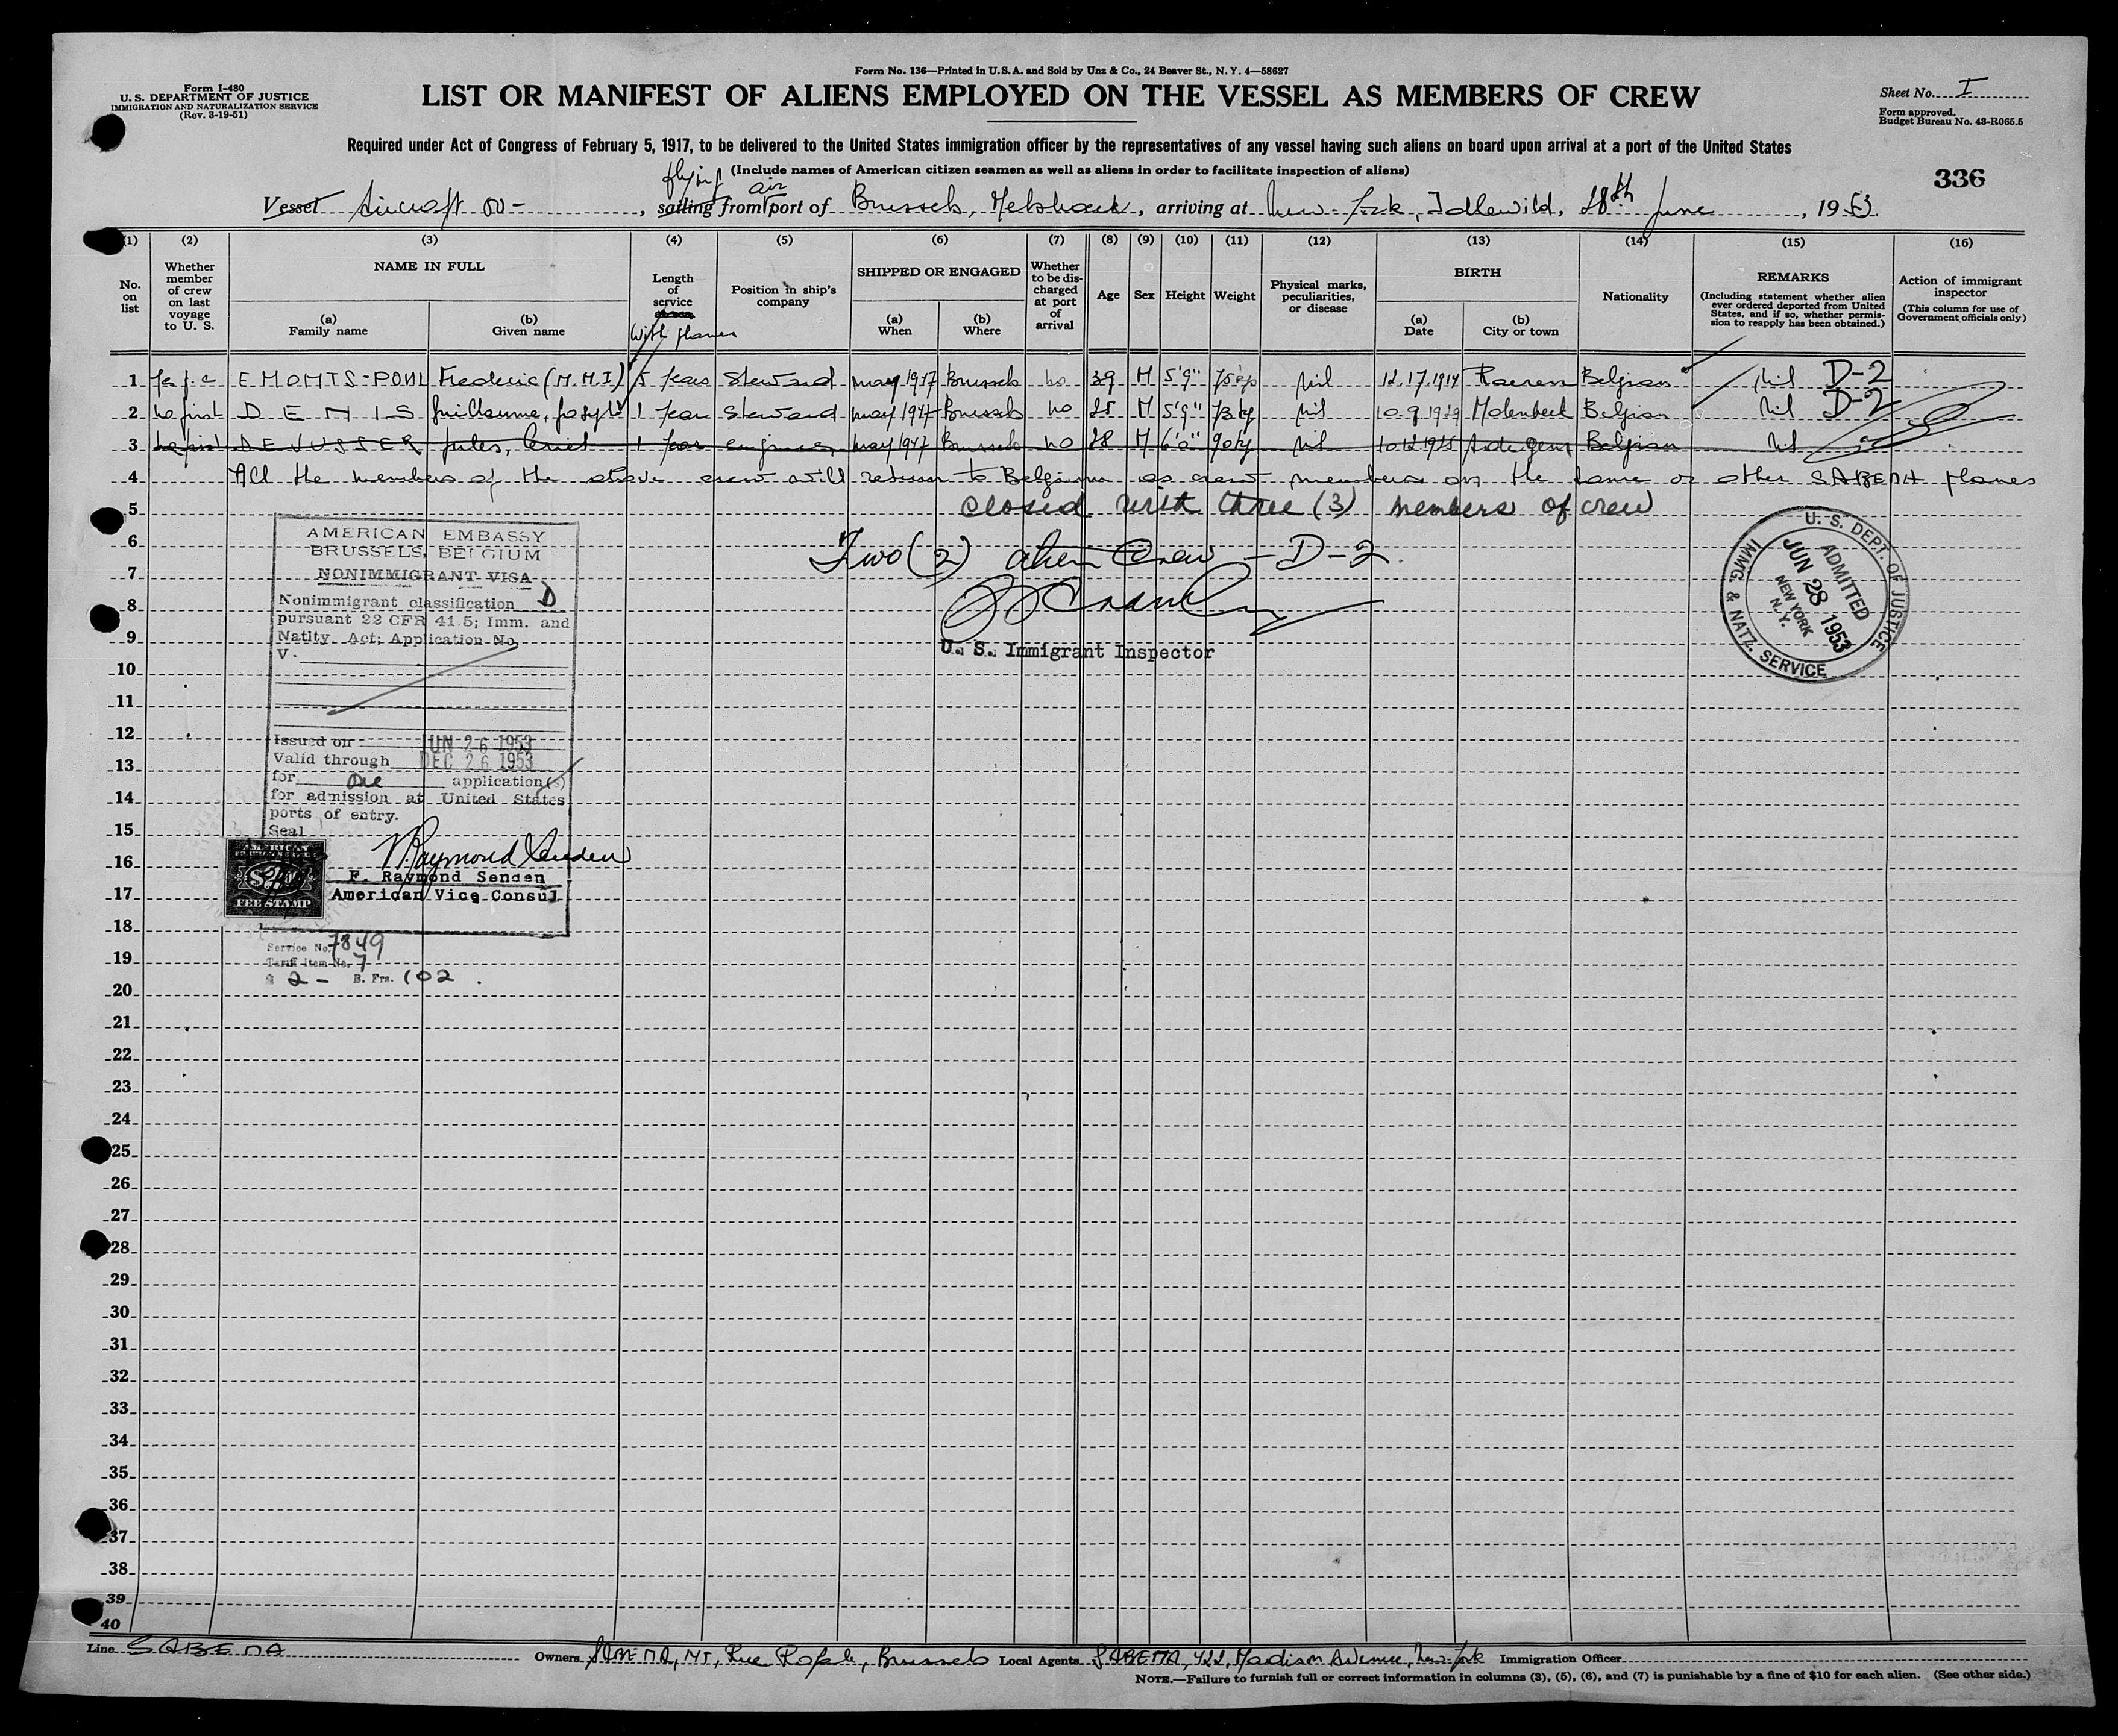 Form No. 136—Printed in U.S.A. and Sold by Unz & Co., 24 Beaver St., N. Y. 4—58627
Form I-480
U. S. DEPARTMENT OF JUSTICE
IMMIGRATION AND NATURALIZATION SERVICE
(Rev. 3-19-51)
LIST OR MANIFEST OF ALIENS EMPLOYED ON THE VESSEL AS MEMBERS OF CREW
Sheet No. I
Form approved.
Budget Bureau No. 43-R065.5
Required under Act of Congress of February 5, 1917, to be delivered to the United States immigration officer by the representatives of any vessel having such aliens on board upon arrival at a port of the United States
(Include names of American citizen seamen as well as aliens in order to facilitate inspection of aliens)
336
flying air
Vessel Aircraft OO- , sailing from port of Brussels, Melsbroek, arriving at New-York, Idlewild, 28th June, 1953
(1) (2) (3) (4) (5) (6) (7) (8) (9) (10) (11) (12) (13) (14) (15) (16)
No. on list
Whether member of crew on last voyage to U. S.
NAME IN FULL
(a) Family name
(b) Given name
Length of service
with planes
Position in ship's company
SHIPPED OR ENGAGED
(a) When
(b) Where
Whether to be discharged at port of arrival
Age
Sex
Height
Weight
Physical marks, peculiarities, or disease
BIRTH
(a) Date
(b) City or town
Nationality
REMARKS
(Including statement whether alien ever ordered deported from United States, and if so, whether permission to reapply has been obtained.)
Action of immigrant inspector
(This column for use of Government officials only)
1 EMONTS-POHL Frederic (M.H.I) 5 years Steward may 1947 Brussels no 39 M 5'9" nil 12.17.1914 Raeren Belgian nil D-2
2 no first DENIS Guillaume, Joseph 1 year Steward may 1947 Brussels no 28 M 5'9" 73 kg nil Molenbeek Belgian nil D-2
3 no first Jules, 1 year engineer may 1947 Brussels no 28 M 6'0" 90 kg nil Belgian nil
4 All the members of the above crew will return to Belgium as crew members on the same or other SABENA planes
5 closed with three (3) members of crew
6 Two (2) alien crew — D-2
7
8
9 U. S. Immigrant Inspector
10
11
12
13
14
15
16
17
18
19
20
21
22
23
24
25
26
27
28
29
30
31
32
33
34
35
36
37
38
39
40
AMERICAN EMBASSY
BRUSSELS, BELGIUM
NONIMMIGRANT VISA
Nonimmigrant classification D
pursuant 22 CFR 41.5; Imm. and
Natlty. Act; Application No.
V-
Issued on JUN 26 1953
Valid through DEC 26 1953
for One application(s)
for admission at United States
ports of entry.
Seal
F. Raymond Senden
American Vice Consul
AMERICAN
FEE STAMP
Service No. 7849
Tariff item No. 7
$ 2 — B. Frs. 102.
U. S. DEPT. OF JUSTICE
IMMG. & NATZ. SERVICE
ADMITTED
JUN 28 1953
NEW YORK
N. Y.
Line SABENA Owners SABENA, Brussels Local Agents SABENA, 422, Madison Avenue, New-York Immigration Officer
NOTE.—Failure to furnish full or correct information in columns (3), (5), (6), and (7) is punishable by a fine of $10 for each alien. (See other side.)